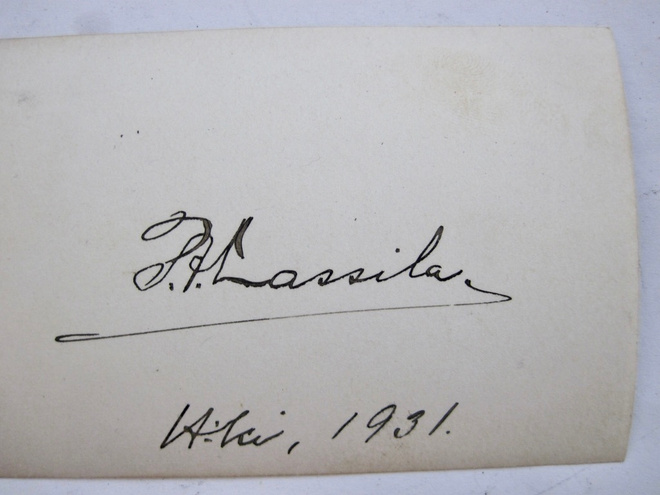 T.A. Lassila.
H:ki, 1931.